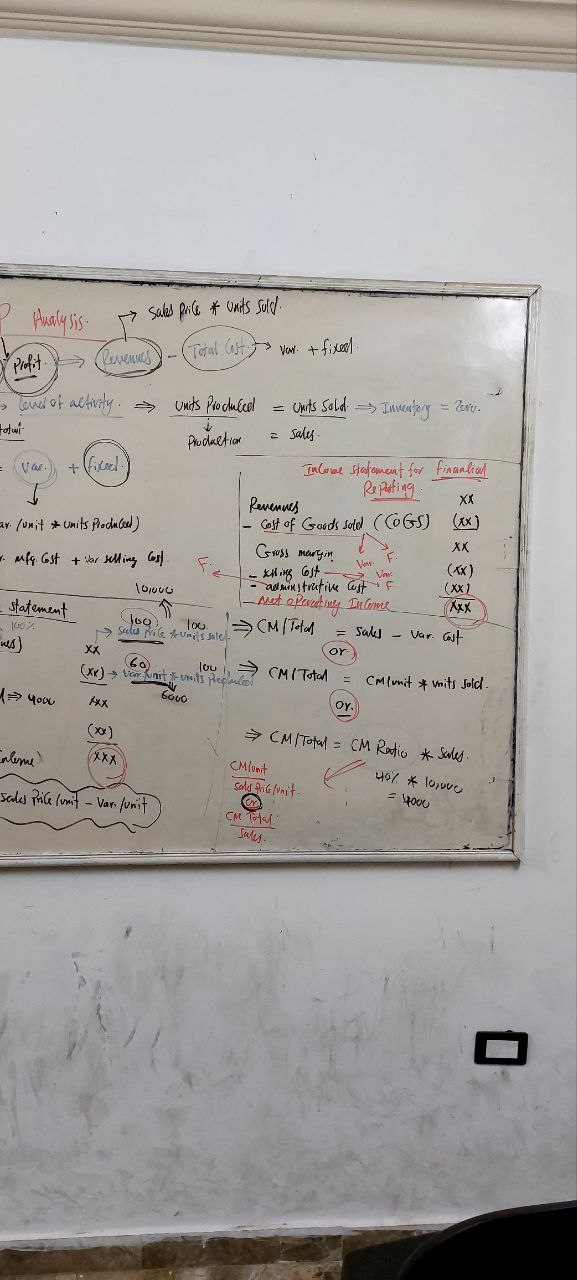 P Analysis.
→ sales Price * units sold.
Profit. ⇒ Revenues - Total Cost. → var. + fixed.
→ level of activity ⇒ units Produced = units Sold ⇒ Inventory = Zero.
↓
Production = sales.
total:
= var. + fixed.
ar. /unit * units Produced)
. mfg. Cost + var selling Cost.
Income statement for financial
Reporting
Revenues xx
- Cost of Goods sold (COGS) (xx)
Var. F.
Gross margin xx
F. - selling Cost Var. (xx)
- administrative Cost F (xx)
Net operating Income xxx
statement
100%
10,000
100 100
xx → sales Price * units sold
60 100
(xx) → var. unit * units Produced
6000
⇒ 4000 xxx
(xx)
xxx
sales Price/unit - Var./unit
⇒ CM/Total = sales - Var. Cost
or
⇒ CM/Total = CM/unit * units sold.
or.
⇒ CM/Total = CM Ratio * sales.
40% * 10,000
= 4000
CM/unit
sales Price/unit.
or
CM Total
sales.